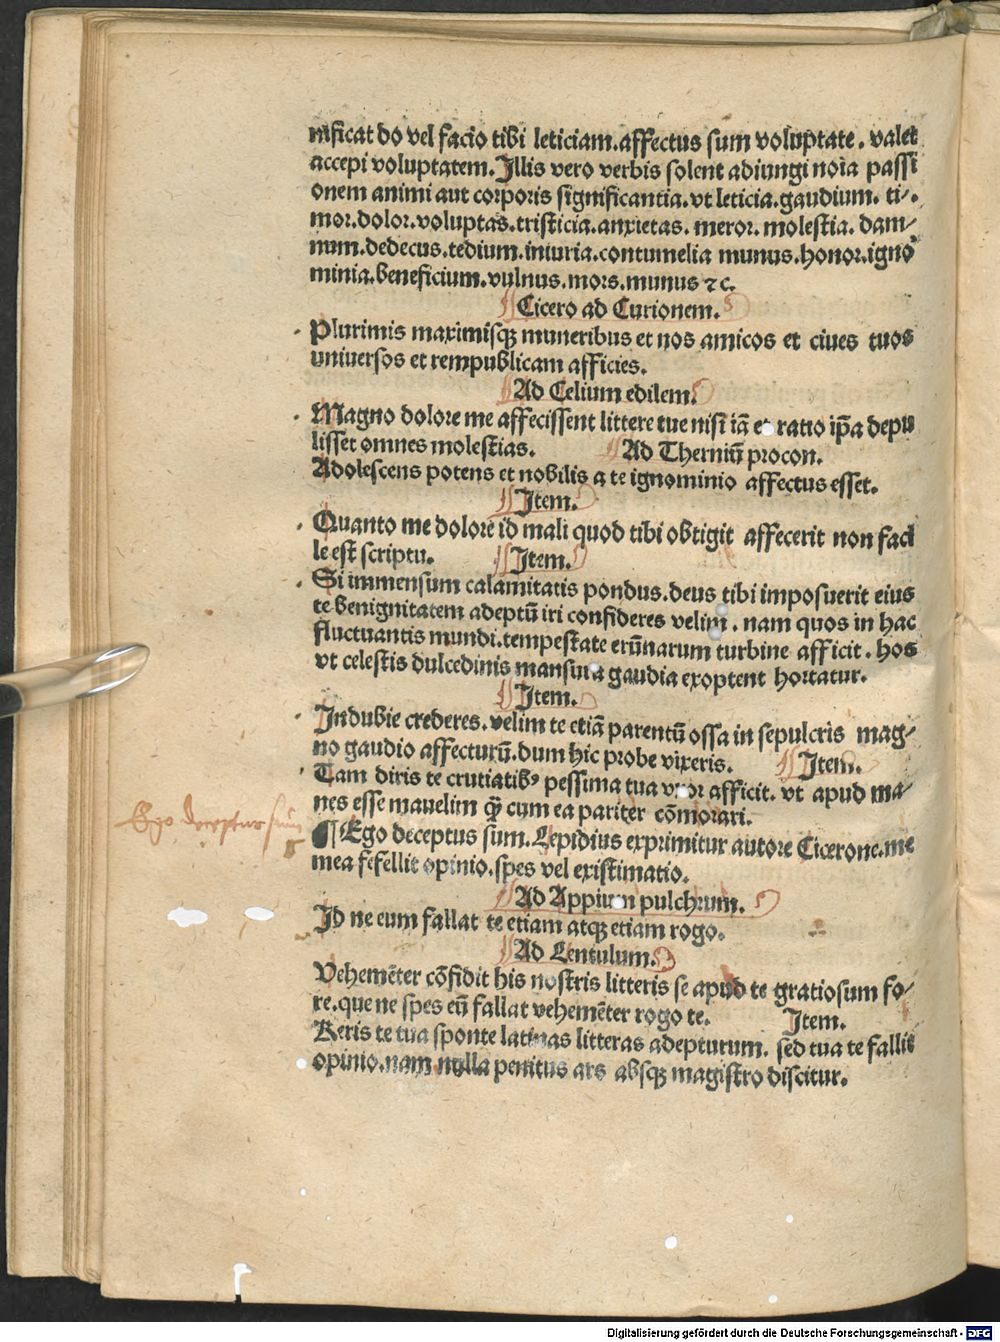 nificat do vel facio tibi leticiam.affectus sum voluptate. valet
accepi voluptatem.Illis vero verbis solent adiungi noīa passi
onem animi aut corporis significantia.vt leticia.gaudium. ti⸗.
mor.dolor.voluptas.tristicia.anxietas. meror. molestia. dam⸗
num.dedecus.tedium.iniuria.contumelia munus.honor.igno
minia.beneficium.vulnus.mors.munus ⁊c.
¶Cicero ad Curionem.
Plurimis maximisqꝫ muneribus et nos amicos et ciues tuos
uniuersos et rempublicam afficies.
¶Ad Celium edilem.
Magno dolore me affecissent littere tue nisi iā et ratio ip̄a depu
lisset omnes molestias. ¶Ad Therniū procon.
Adolescens potens et nobilis a te ignominio affectus esset.
¶Item.
Quanto me dolore id mali quod tibi obtigit affecerit non faci
le est scriptu. ¶Item.
Si immensum calamitatis pondus.deus tibi imposuerit eius
te benignitatem adeptū iri confideres velim. nam quos in hac
fluctuantis mundi.tempestate erūnarum turbine afficit. hos
vt celestis dulcedinis mansura gaudia exoptent hortatur.
¶Item.
Indubie crederes.velim te etiā parentū ossa in sepulcris mag⸗
no gaudio affecturū.dum hic probe vixeris. ¶Item.
Tam diris te crutiatibꝰ pessima tua vxor afficit. vt apud ma⸗
nes esse mauelim qꝫ̄ cum ea pariter cōmorari.
Ego deceptus sum
¶Ego deceptus sum.Lepidius exprimitur autore Cicerone.me
mea fefellit opinio.spes vel existimatio.
¶Ad Appium pulchrum.
Id ne eum fallat te etiam atqꝫ etiam rogo.
¶Ad Lentulum.
Vehemēter cōfidit his nostris litteris se apud te gratiosum fo⸗
re.que ne spes eū fallat vehemēter rogo te. Item.
Reris te tua sponte latinas litteras adepturum. sed tua te fallit
opinio.nam nulla penitus ars absqꝫ magistro discitur.
Digitalisierung gefördert durch die Deutsche Forschungsgemeinschaft - DFG